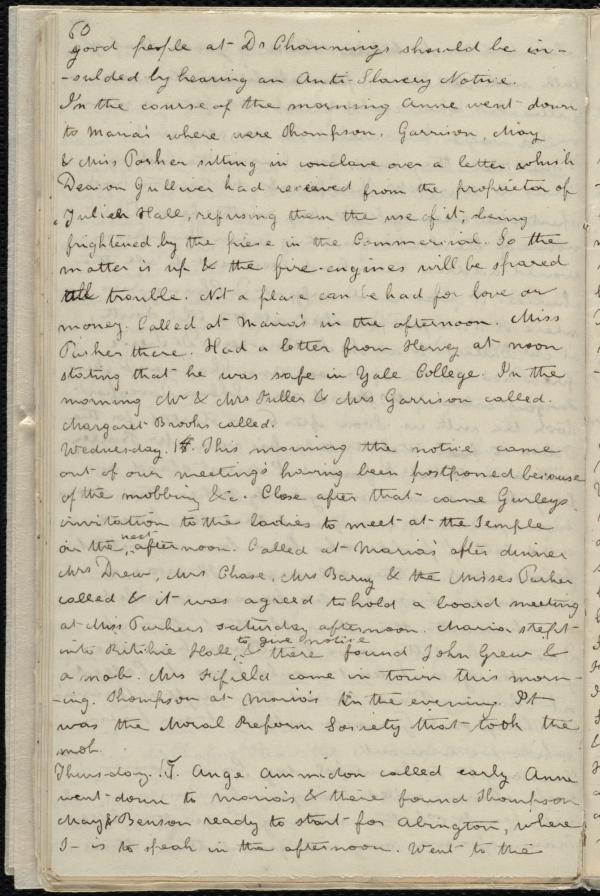 60
good people at Dr Channings should be in-
-sulded by hearing an Anti-Slavery Notice.
In the course of the morning Anne went down
to Maria's where were Thompson, Garrison, May
& Miss Parker sitting in conclave over a letter which
Deacon Gulliver had received from the proprietor of
Julien Hall, refusing them the use of it, being
frightened by the piece in the Commercial. So the
matter is up & the fire-engines will be spared
all trouble. Not a place can be had for love or
money. Called at Maria's in the afternoon. Miss
Parker there. Had a letter from Hervey at noon
stating that he was safe in Yale College. In the
morning Mr & Mrs Fuller & Mrs Garrison called.
Margaret Brooks called.
Wednesday. 14. This morning the notice came
out of our meeting's having been postponed because
of the mobbing &c. Close after that came Gurleys
invitation to the ladies to meet at the Temple
on the next afternoon. Called at Maria's after dinner
Mrs Drew, Mrs Chase, Mrs Barny & the Misses Parker
called & it was agreed to hold a board meeting
at Miss Parkers saturday afternoon. Maria stept
into Ritchie Hall, to give notice & there found John Grew &
a mob. Mrs Fifield came in town this morn-
-ing. Thompson at Maria's in the evening. It
was the Moral Reform Society that took the
mob.
Thursday. 15. Ange Ammidon called early Anne
went down to Maria's & there found Thompson
May & Benson ready to start for Abington, where
T- is to speak in the afternoon. Went to the